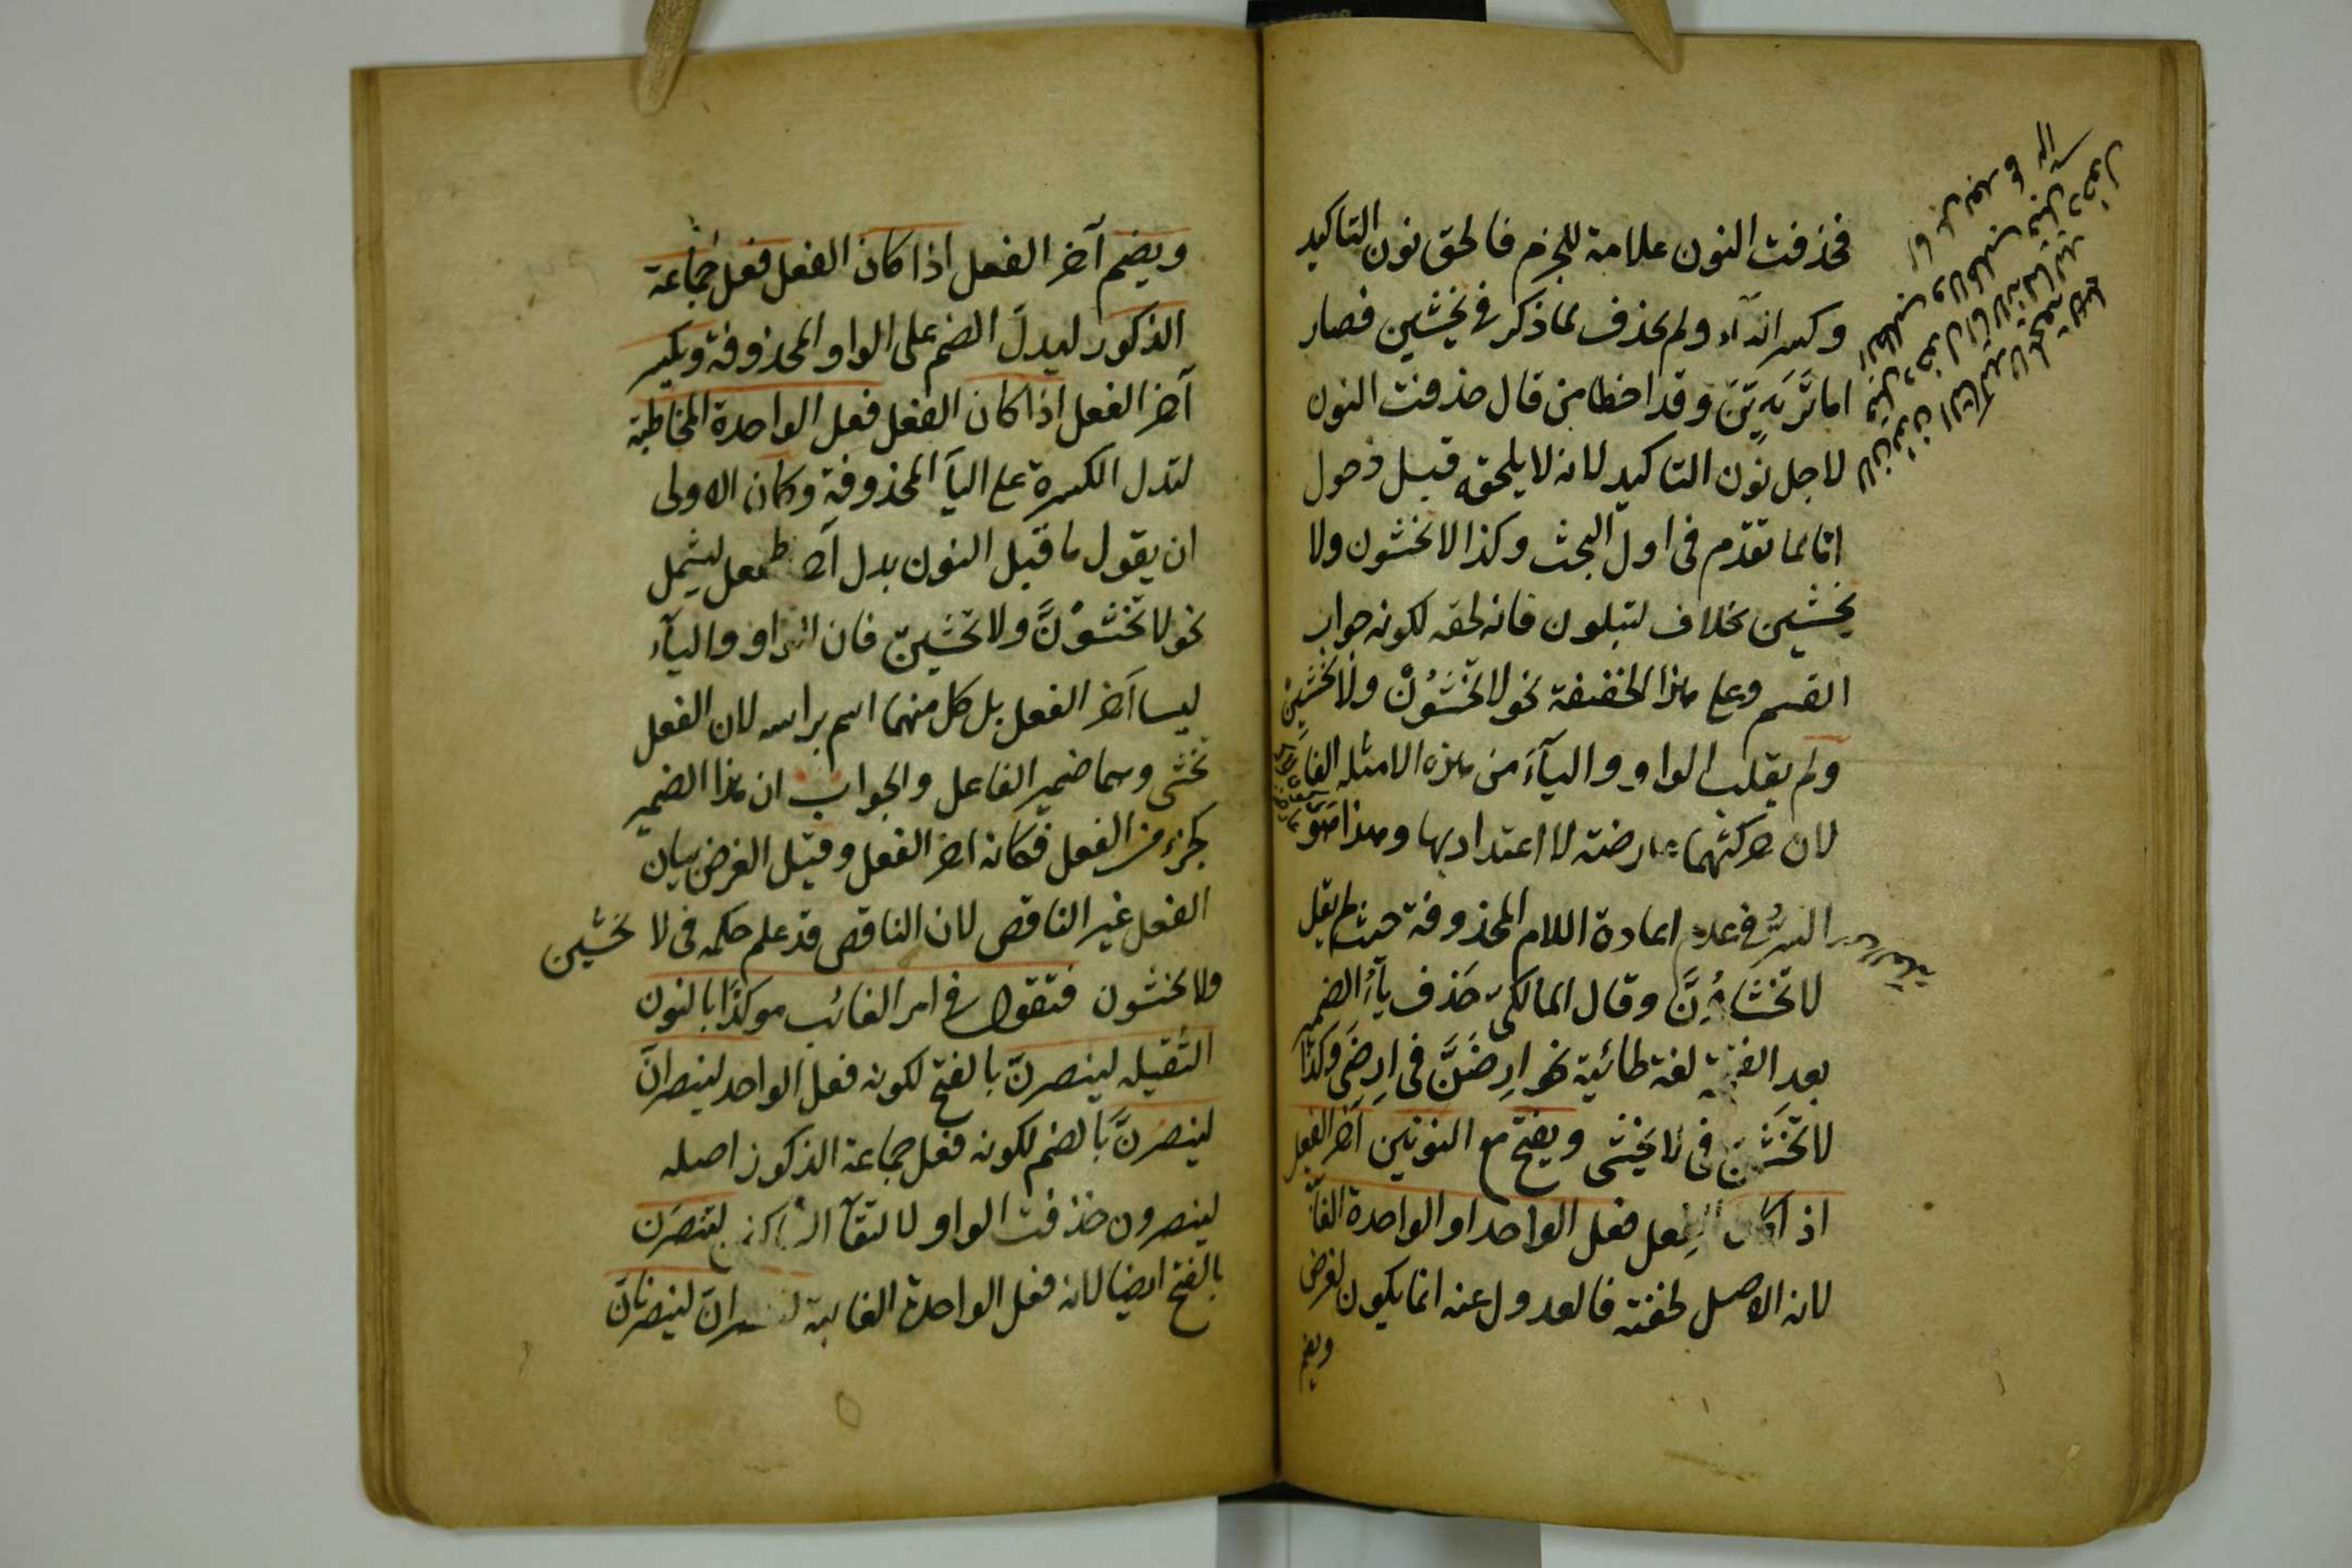 فحذفت النون علامة للجزم فالحق نون التاكيد
وكسر الياء ولم يحذف لما ذكر فى تخشين فصار
اما تَرَيِنَّ وقد اخطا من قال حذفت النون
لاجل نون التاكيد لانه لا يلحقه قبل دخول
اما لما تقدم فى اول البحث وكذا لا تخشون ولا
تخشين بخلاف لتبلون فانه لحقه لكونه جواب
القسم وعلى هذا الخفيفة نحو لا تَخْشَوُنْ ولا تخشين
ولم يقلب الواو والياء من هذه الامثله الفا
لان حركتهما عارضته لا اعتداد بها وهذا هو
السرُّ فى عدم اعادة اللام المحذوفة حيث لم يقل
لا تخشاوُنَّ وقال المالكى حذف ياء الضمير
بعد الفتحة لغة طائية نحو ارضَنَّ فى ارضَى وكذا
لا تَخْشَنَّ فى لا تخشى ويفتح مع النونين آخر الفعل
اذا كان الفعل فعل الواحد او الواحدة الغا
لانه الاصل لخفته فالعدول عنه انما يكون لغرض
ويضم
ويضم آخر الفعل اذا كان الفعل فعل جماعة
الذكور ليدلَ الضم على الواو المحذوفة ويكسر
آخر الفعل اذا كان الفعل فعل الواحدة المخاطبة
لتدل الكسرة على الياء المحذوفة وكان الاولى
ان يقول ما قبل النون بدل آخر الفعل ليشمل
نحو لا تخشوُنَّ ولا تخشينّ فان الواو والياء
ليسا آخر الفعل بل كل منهما اسم براسه لان الفعل
تخشى وهما ضمير الفاعل والجواب ان هذا الضمير
كجزء من الفعل فكانه اخر الفعل وقيل الغرض بيان
الفعل غير الناقص لان الناقص قد علم حكمه فى لا تخشين
ولا تخشون فتقول فى امر الغائب موكدًا بالنون
الثقيله لينصرنّ بالفتح لكونه فعل الواحد لينصرانّ
لينصرنَّ بالضم لكونه فعل جماعة الذكور اصله
لينصرون حذفت الواو لالتقاء الساكنين لتنصرن
بالفتح ايضا لانه فعل الواحدة الغايبة لتنصرانّ لينصرنانّ